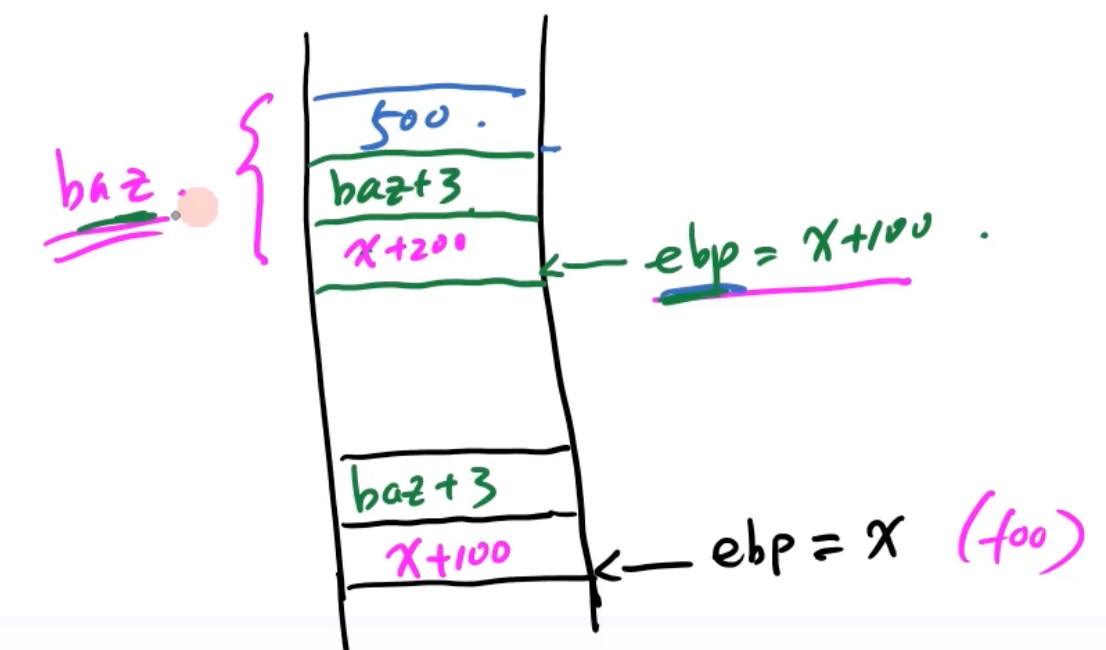 500.
baz
baz+3
x+200
ebp = x+100
baz+3
x+100
ebp = x (foo)